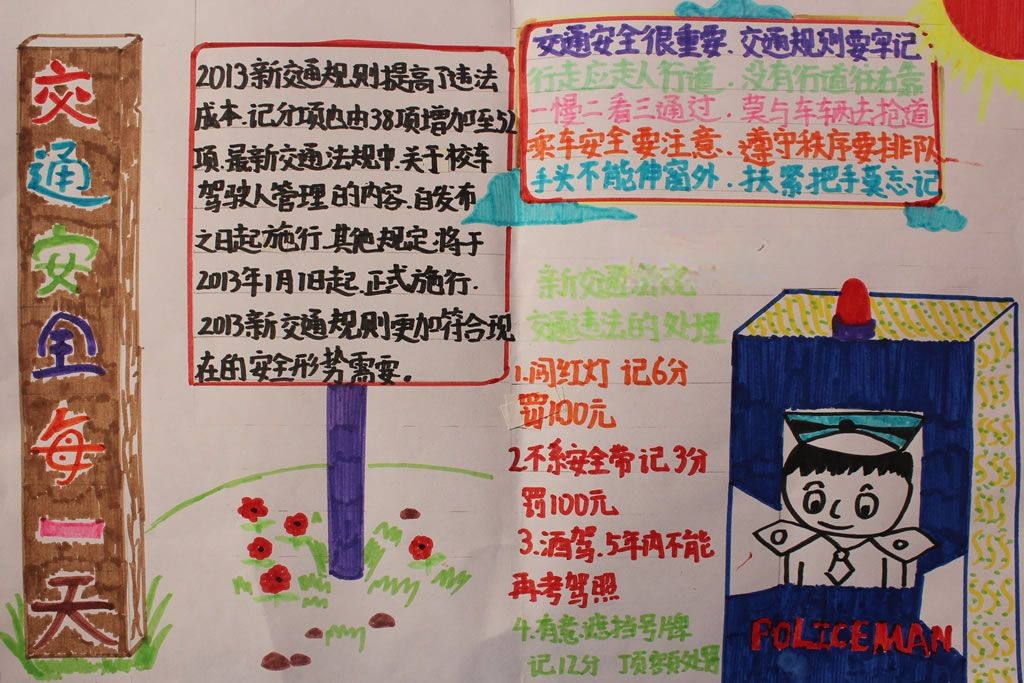 交通安全每一天
2013新交通规则提高了违法
成本.记分项也由38项增加至52
项.最新交通法规中.关于校车
驾驶人管理的内容.自发布
之日起施行.其他规定.将于
2013年1月1日起.正式施行.
2013新交通规则更加符合现
在的安全形势需要。
交通安全很重要.交通规则要牢记
行走应走人行道.没有行道往右靠
一慢二看三通过.莫与车辆去抢道
乘车安全要注意.遵守秩序要排队
手头不能伸窗外.扶紧把手莫忘记
新交通法规
交通违法的处理
1.闯红灯 记6分
罚100元
2.不系安全带记3分
罚100元
3.酒驾.5年内不能
再考驾照
4.有意.遮挡号牌
记12分 顶额处罚
POLICEMAN